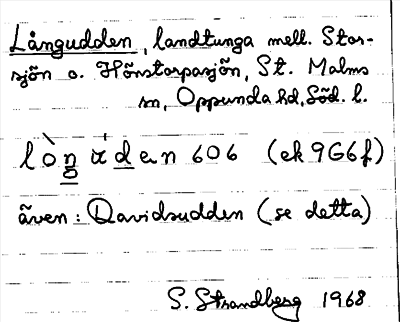 Långudden, landtunga mell. Stor-
sjön o. Hönstorpasjön, St. Malms
sn, Oppunda hd, Söd. l.
606 (ek 9G6f)
även: Davidsudden (se detta)
S. Strandberg 1968